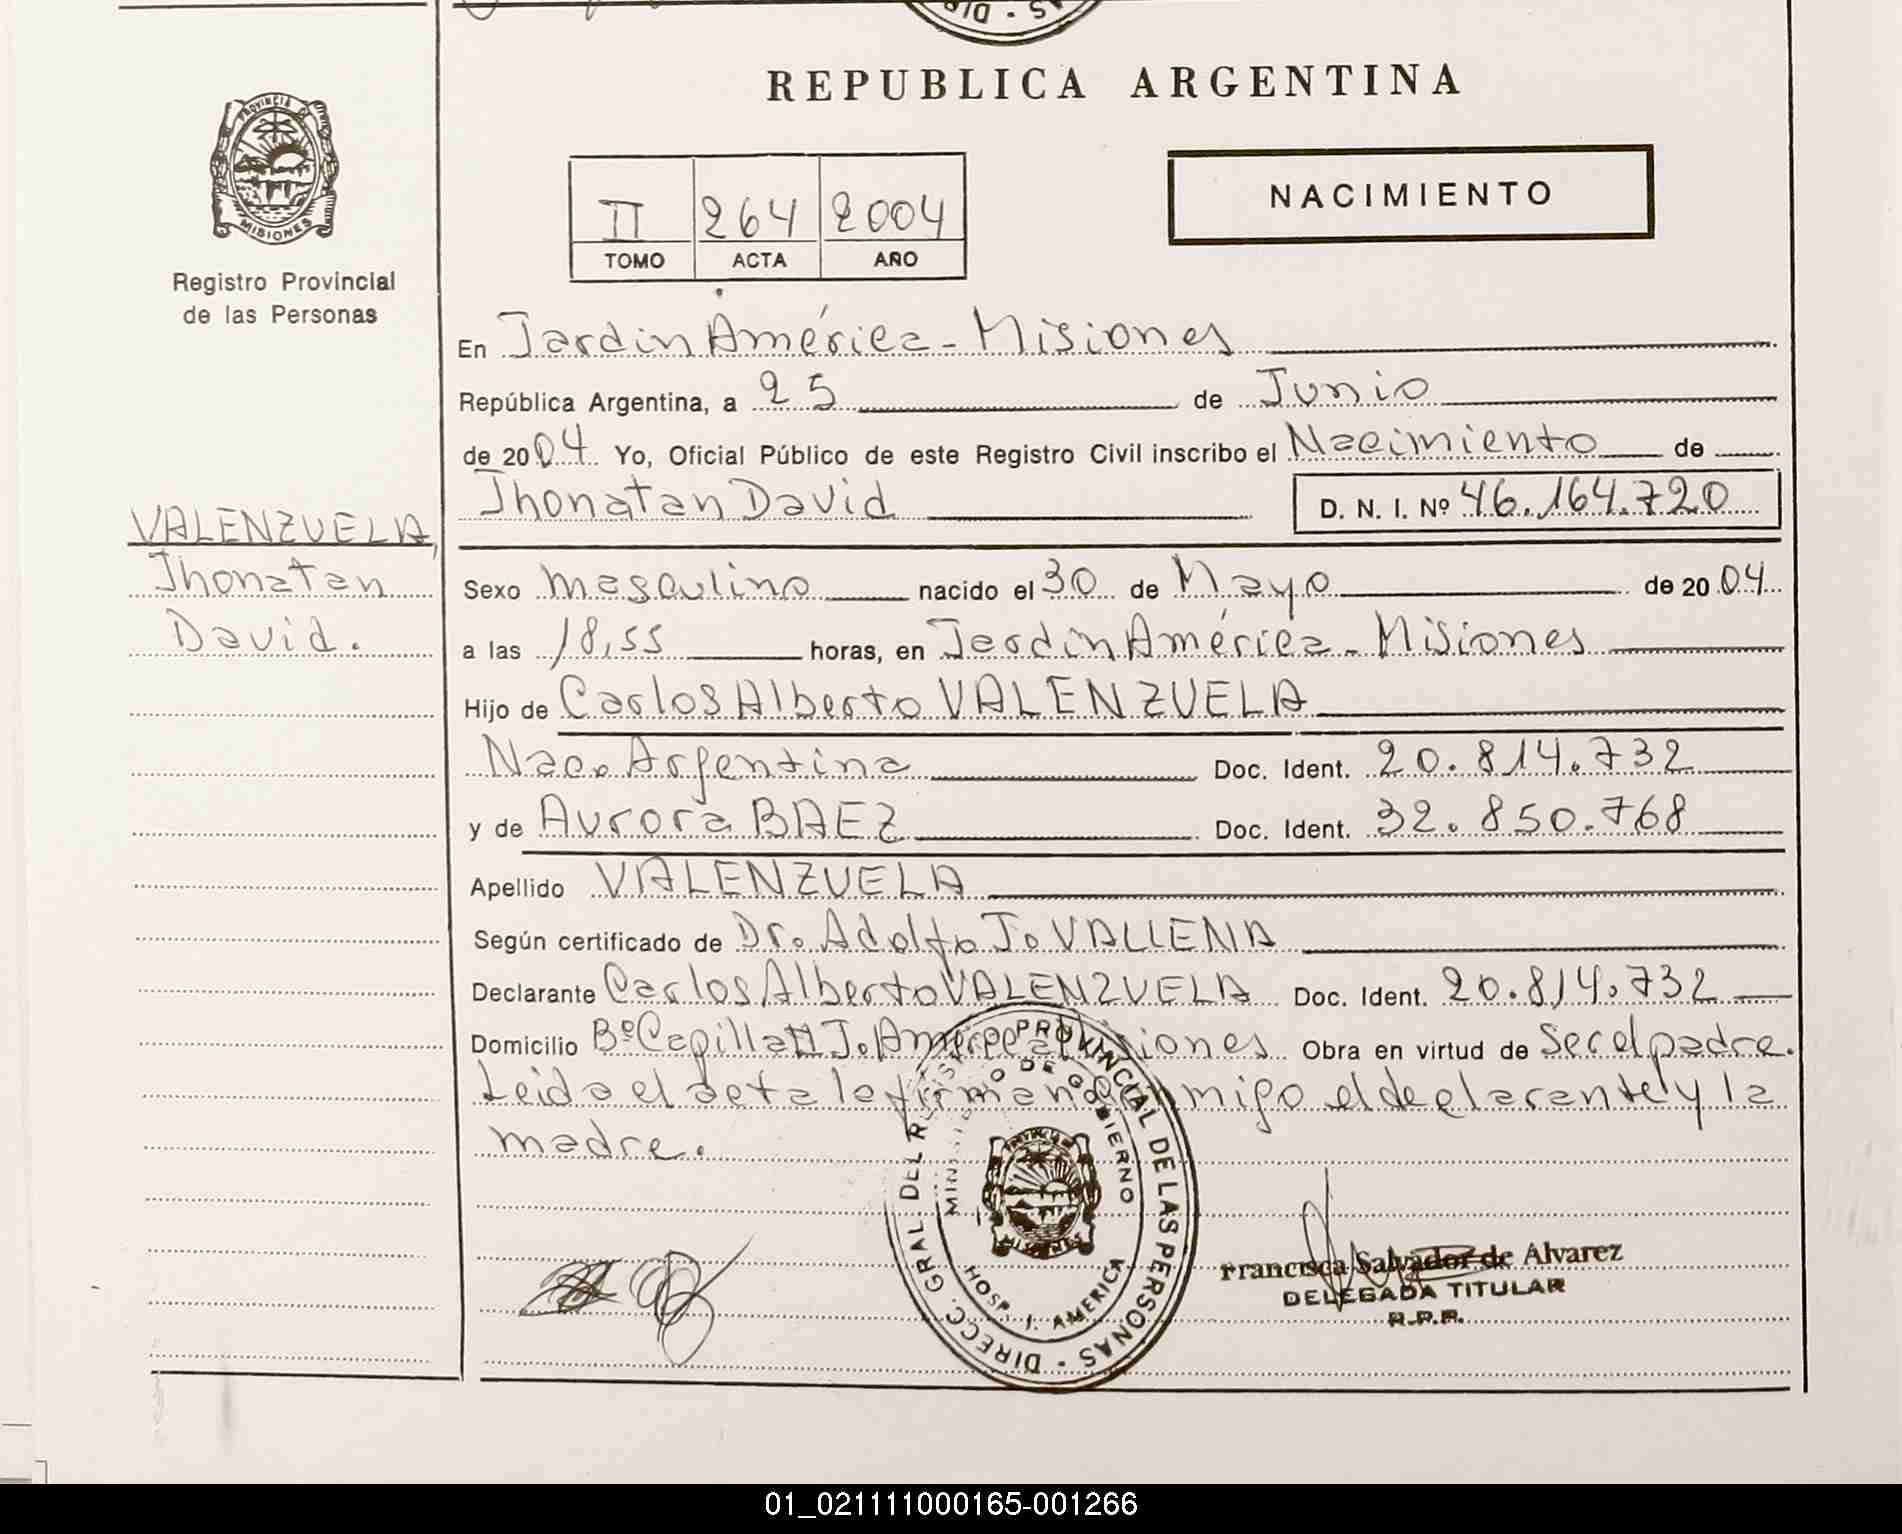 REPUBLICA ARGENTINA
PROVINCIA DE MISIONES
Registro Provincial
de las Personas
NACIMIENTO
II 264 2004
TOMO ACTA AÑO
En Jardin América - Misiones
República Argentina, a 25 de Junio
de 2004 Yo, Oficial Público de este Registro Civil inscribo el Nacimiento de
Jhonatan David D. N. I. Nº 46.164.720
VALENZUELA,
Jhonatan
David.
Sexo masculino nacido el 30 de Mayo de 2004
a las 18,55 horas, en Jardin América - Misiones
Hijo de Carlos Alberto VALENZUELA
Nac. Argentina Doc. Ident. 20.814.732
y de Aurora BAEZ Doc. Ident. 32.850.768
Apellido VALENZUELA
Según certificado de Dr. Adolfo J. VALLENA
Declarante Carlos Alberto VALENZUELA Doc. Ident. 20.814.732
Domicilio Bº Capilla J. América Misiones Obra en virtud de Ser el padre.
Leida el acta la firman conmigo el declarante y la
madre.
DIRECC. GRAL. DEL REGISTRO PROVINCIAL DE LAS PERSONAS
MINISTERIO DE GOBIERNO
HOSP. J. AMERICA
Francisca Salvador de Alvarez
DELEGADA TITULAR
R.P.P.
01_021111000165-001266